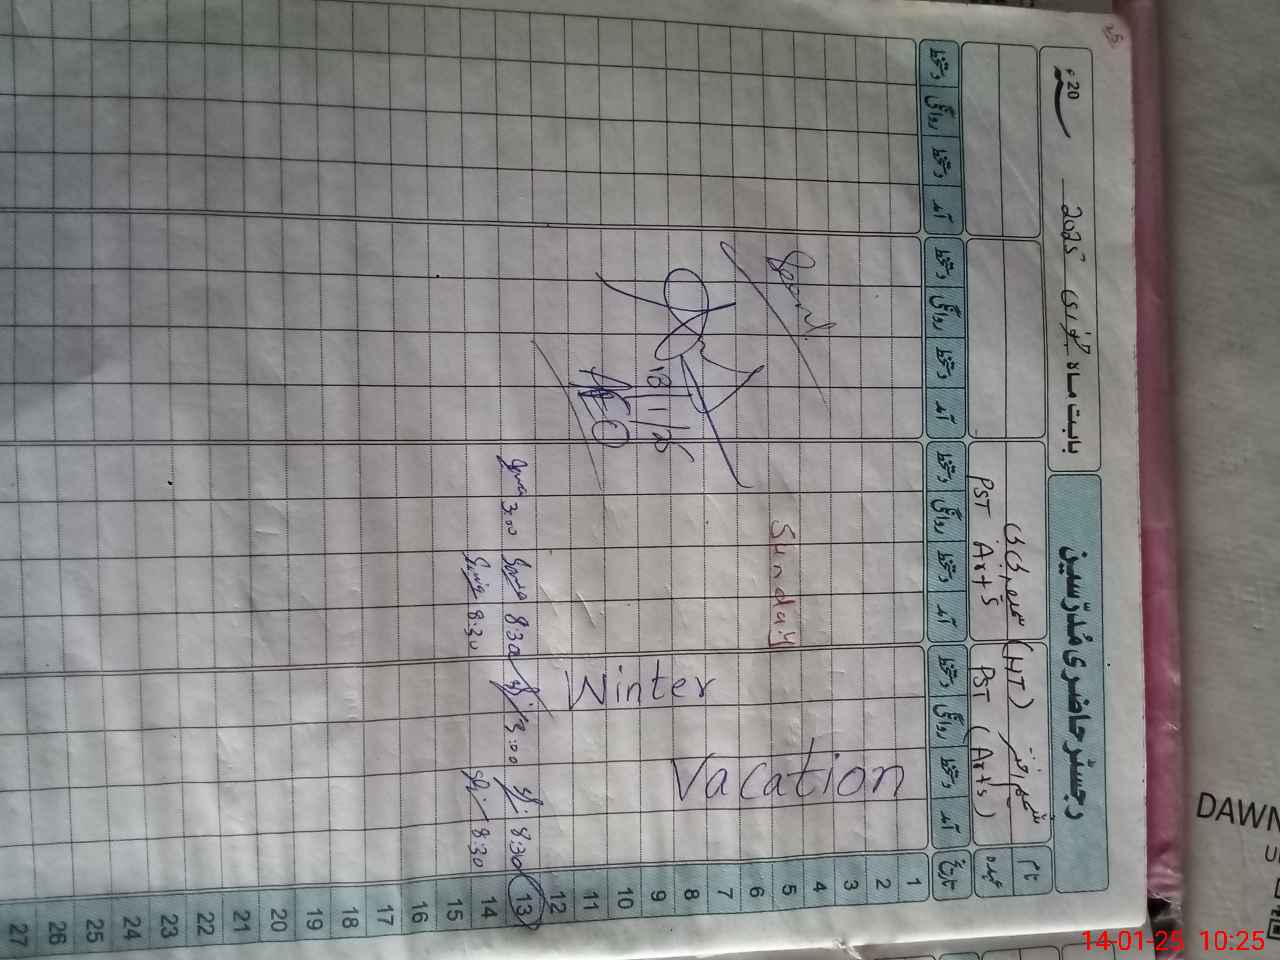 25
رجسٹر حاضری مُدرّسین
بابت ماہ جنوری 2025 ء20
نام
(HT)
عہدہ PST (Arts) PST Arts
تاریخ آمد دستخط روانگی دستخط آمد دستخط روانگی دستخط آمد دستخط روانگی دستخط آمد دستخط روانگی دستخط
1
2
3
4
5 Sunday
6
7
8
9
10
11
12
Vacation
Winter
AEO
13 8:30 3:00 8:30 3:00
14 8:30 8:30
15
16
17
18
19
20
21
22
23
24
25
26
27
DAWN
14-01-25 10:25